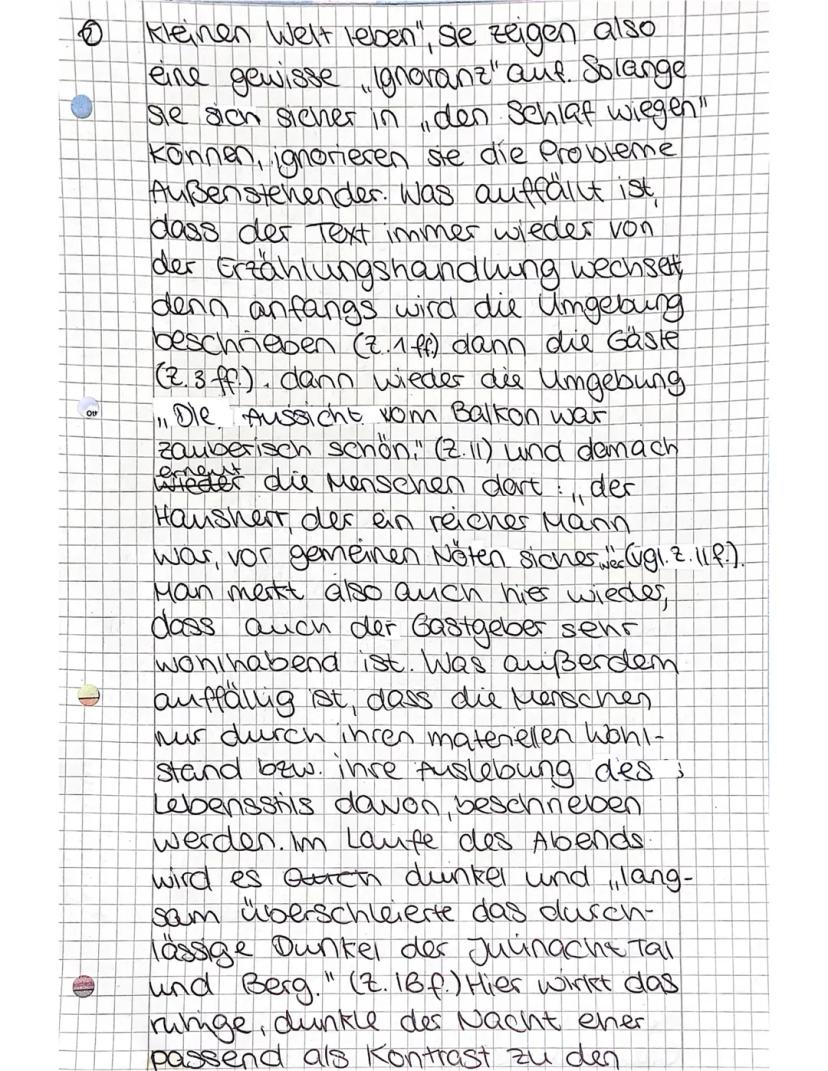 ② kleinen Welt leben", sie zeigen also
eine gewisse „Ignoranz" auf. Solange
sie sich sicher in „den Schlaf wiegen"
können, ignorieren sie die Probleme
Außenstehender. Was auffällt ist,
dass der Text immer wieder von
der Erzählungshandlung wechselt,
denn anfangs wird die Umgebung
beschrieben (Z.1ff) dann die Gäste
(Z.3ff.), dann wieder die Umgebung
„Die Aussicht vom Balkon war
zauberisch schön." (Z.11) und demach
erneut
wieder die Menschen dort: „der
Hausherr, der ein reicher Mann
war, vor gemeinen Nöten sicher war" (vgl. Z.11f.).
Man merkt also auch hier wieder,
dass auch der Gastgeber sehr
wohlhabend ist. Was außerdem
auffällig ist, dass die Menschen
nur durch ihren materiellen Wohl-
stand bzw. ihre Auslebung des
Lebensstils davon, beschrieben
werden. Im Laufe des Abends
wird es auch dunkel und „lang-
sam überschleierte das durch-
lässige Dunkel der Juninacht Tal
und Berg." (Z.18f.) Hier wirkt das
ruhige, dunkle der Nacht eher
passend als Kontrast zu den